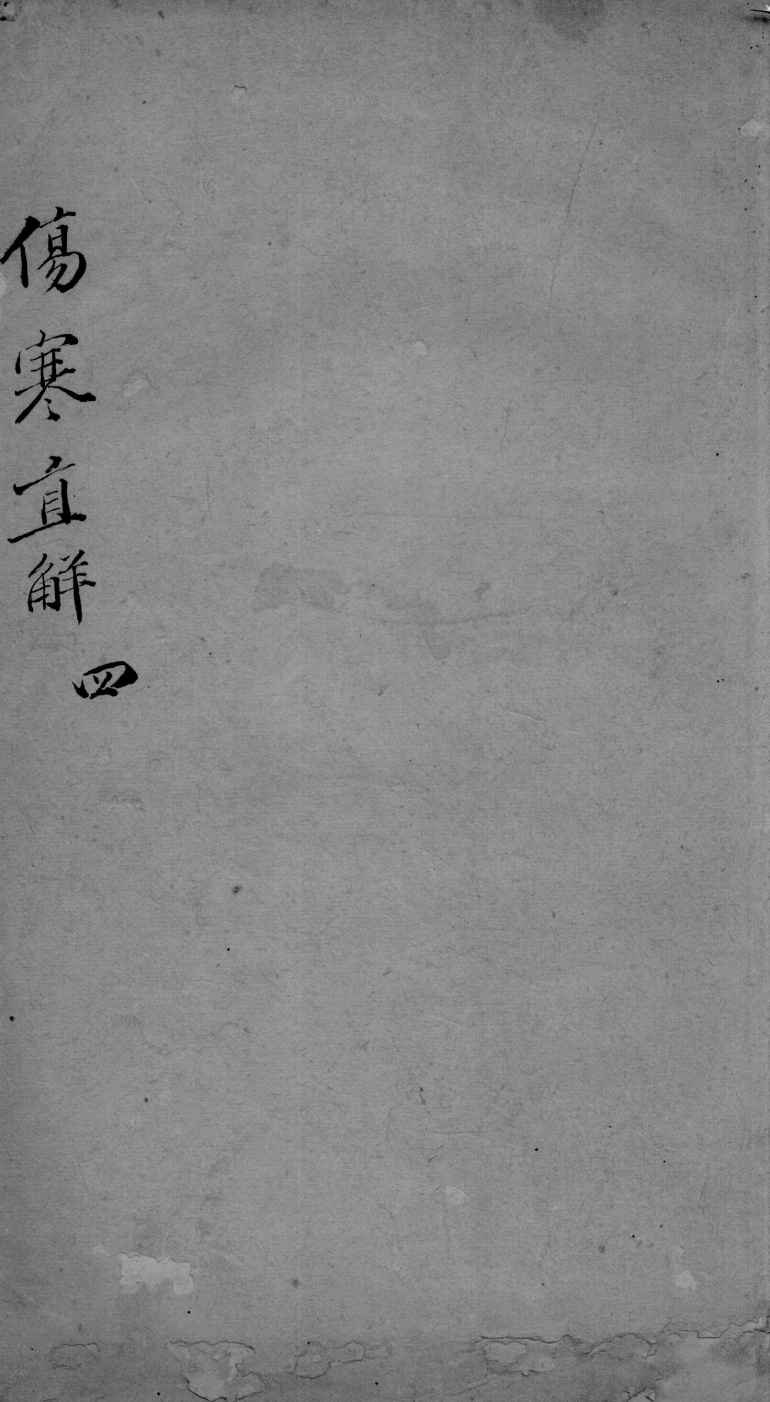 傷寒直解
四